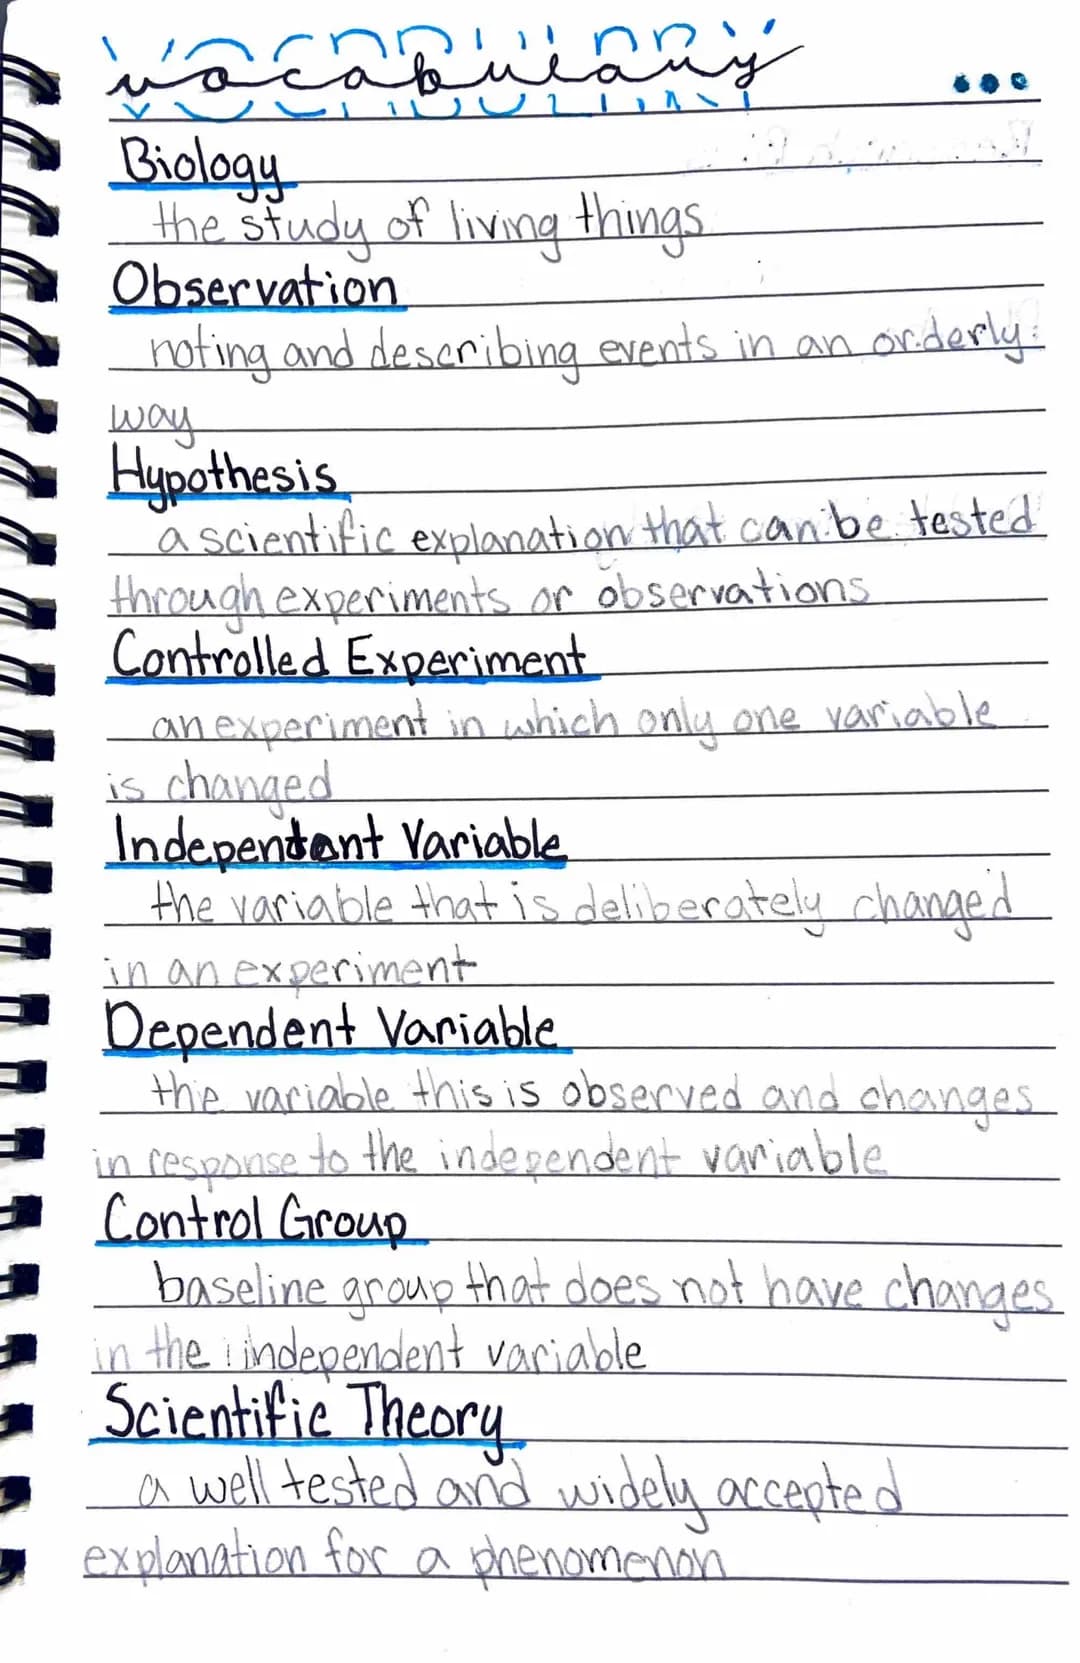 vocabulary
Biology
the study of living things
Observation
noting and describing events in an orderly
way
Hypothesis
a scientific explanation that can be tested
through experiments or observations
Controlled Experiment
an experiment in which only one variable
is changed
Independent Variable
the variable that is deliberately changed
in an experiment
Dependent Variable
the variable this is observed and changes
in response to the independent variable
Control Group
baseline group that does not have changes
in the independent variable
Scientific Theory
a well tested and widely accepted
explanation for a phenomenon